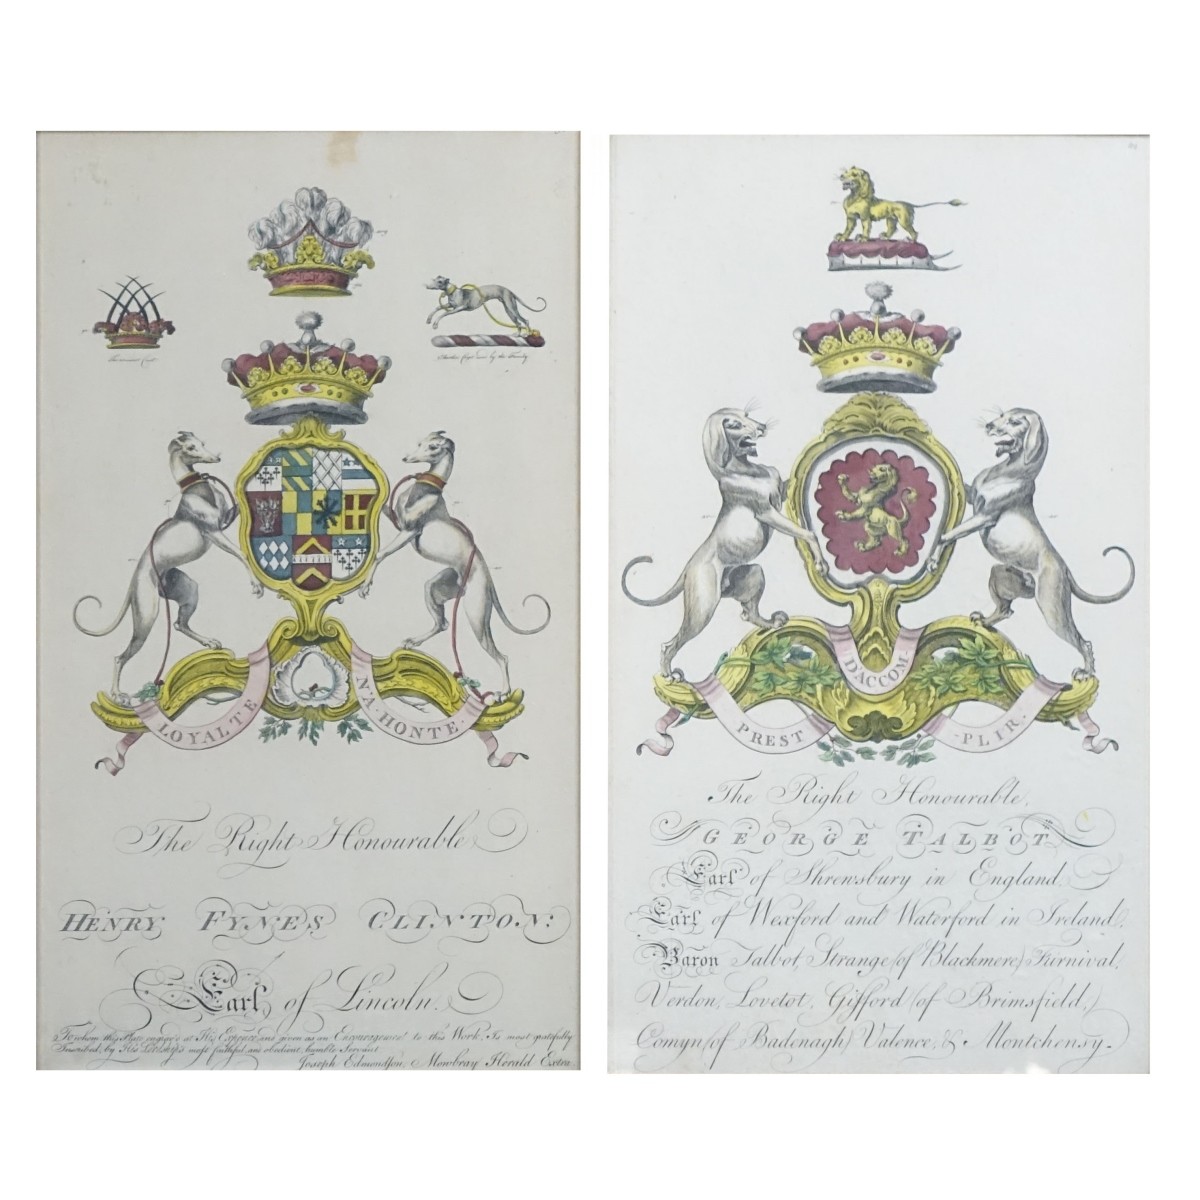 The ancient Crest
Another Crest used by the Family
LOYALTE
N'A HONTE.
The Right Honourable
HENRY FYNES CLINTON:
Earl of Lincoln.
To whom this Plate engrav'd at His Expence and given as an Encouragement to this Work, Is most gratefully
Inscribed, by His Lordship's most faithful and obedient humble Servant
Joseph Edmondson, Mowbray Herald Extra.
PREST
D'ACCOM-
-PLIR.
The Right Honourable,
GEORGE TALBOT
Earl of Shrewsbury in England,
Earl of Wexford and Waterford in Ireland,
Baron Talbot, Strange (of Blackmere) Furnival,
Verdon, Lovetot, Gifford (of Brimsfield,)
Comyn (of Badenagh) Valence, & Montchensy.